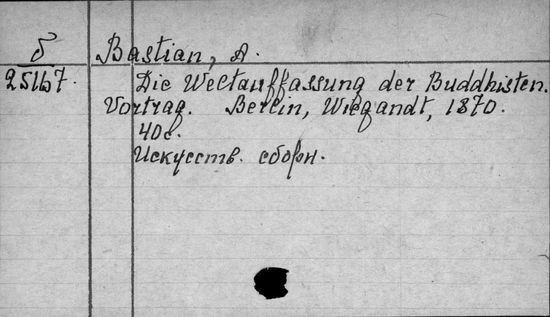 δ Bastian, A.
25167. Die Weltauffassung der Buddhisten.
Vortrag. Berlin, Wiegandt, 1870.
40 с.
Искусств. сборн.